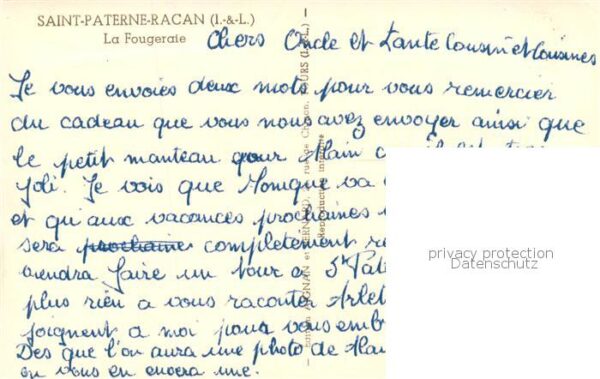 SAINT-PATERNE-RACAN (I.-&-L.)
La Fougeraie
Chers Oncle et Tante Cousin et Cousines
Je vous envoies deux mots pour vous remercier
du cadeau que vous nous avez envoyer ainsi que
le petit manteau pour Alain
joli. Je vois que Monique va
et qu'aux vacances prochaines
sera prochaine complètement
viendra faire un tour a St Pat
plus rien a vous raconter Arlet
joignent a moi pour vous emb
Des que l'on aura une photo de Alai
on vous en envera une.
Edition AIGNAN et BERNARD, rue George Chinon, TOURS (I.-&-L.)
Reproduction interdite
privacy protection
Datenschutz